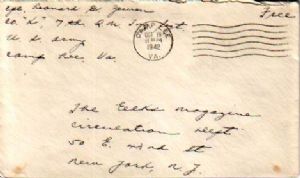 Cpl. Leonard
Co "L" 7th Q.M.
U S Army
Camp Lee, Va
Free
CAMP LEE
OCT 19
1942
VA.
The Elks Magazine
Circulation Dept
50 E. 42nd St
New York, N. Y.